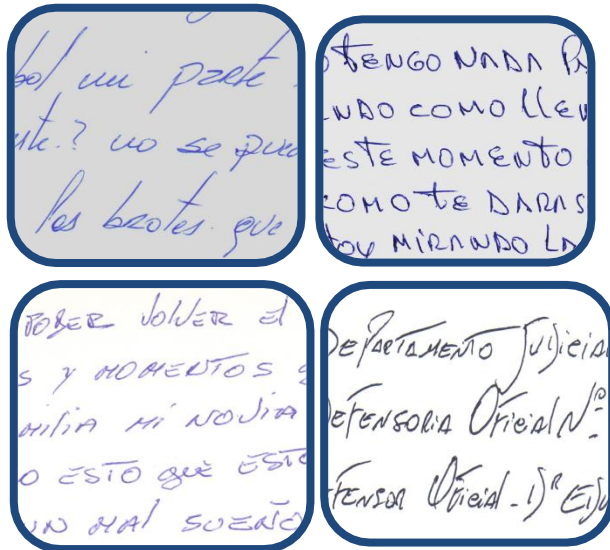 bol mi parte
nte.? no se pued
los brotes. que
O TENGO NADA PA
ANDO COMO LLEV
ESTE MOMENTO
COMO TE DARAS
toy MIRANDO LA
PODER VOLVER El
S Y MOMENTOS
MiliA Mi NOViA
O ESTO QUE ESTO
UN MAl SUEÑO
DEPARTAMENTO JUDiCiAl
DEFENSORiA OFiCiAl Nº
EFENSOR OFiCiAl - DR